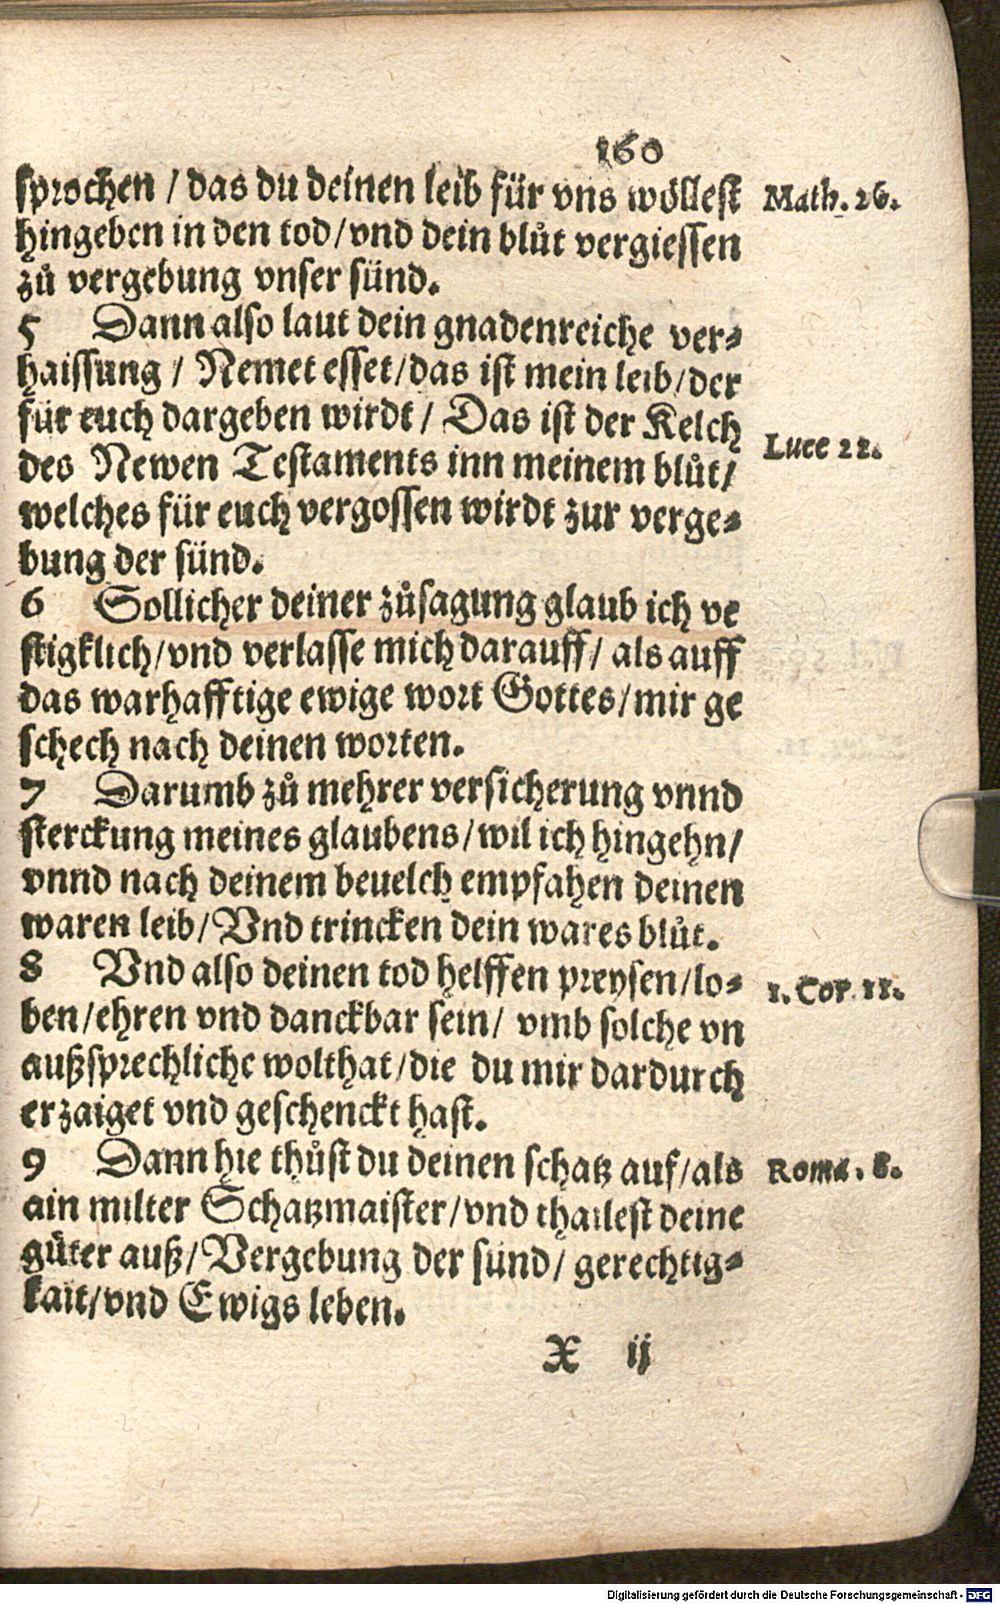 160
sprochen / das du deinen leib für vns wöllest
Math. 26.
hingeben in den tod/vnd dein blůt vergiessen
zů vergebung vnser sünd.
5 Dann also laut dein gnadenreiche ver⸗
haissung / Nemet esset/das ist mein leib/der
für euch dargeben wirdt / Das ist der Kelch
Luce 22.
des Newen Testaments inn meinem blůt/
welches für euch vergossen wirdt zur verge⸗
bung der sünd.
6 Sollicher deiner zůsagung glaub ich ve
stigklich/vnd verlasse mich darauff/ als auff
das warhafftige ewige wort Gottes/mir ge
schech nach deinen worten.
7 Darumb zů mehrer versicherung vnnd
sterckung meines glaubens/wil ich hingehn/
vnnd nach deinem beuelch empfahen deinen
waren leib/Vnd trincken dein wares blůt.
8 Vnd also deinen tod helffen preysen/lo⸗
1. Cor 11.
ben/ehren vnd danckbar sein/ vmb solche vn
außsprechliche wolthat/die du mir dardurch
erzaiget vnd geschenckt hast.
9 Dann hie thůst du deinen schatz auf/als
Roma. 8.
ain milter Schatzmaister/vnd thailest deine
gůter auß/Vergebung der sünd/ gerechtig⸗
kait/vnd Ewigs leben.
X ij
Digitalisierung gefördert durch die Deutsche Forschungsgemeinschaft - DFG